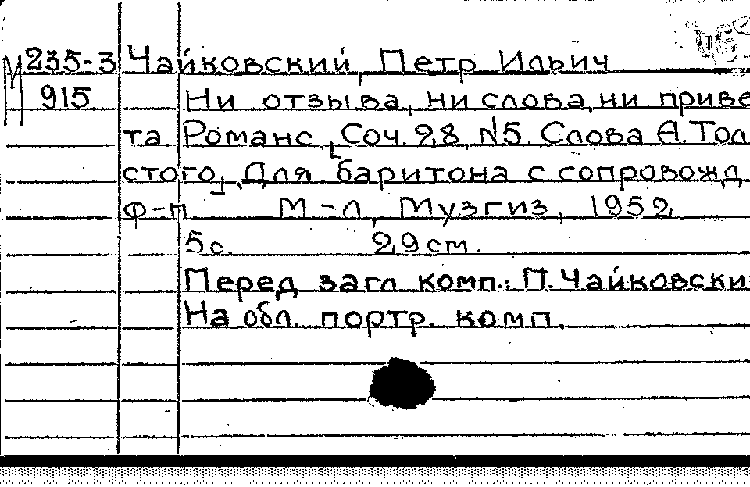 М 235-3 Чайковский, Петр Ильич
915 Ни отзыва, ни слова, ни приве
та. Романс, Соч. 28, №5. Слова А. Тол
стого. Для баритона с сопровожд
ф-п. М-Л, Музгиз, 1952,
5с. 29см.
Перед загл. комп.: П. Чайковски
На обл. портр. комп.